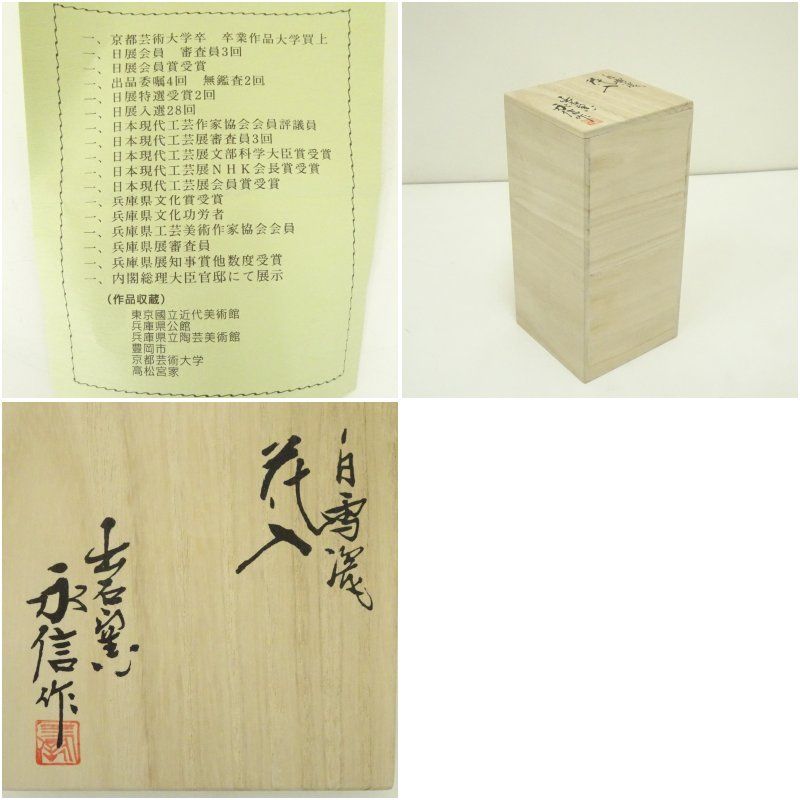 一、京都芸術大学卒　卒業作品大学買上
一、日展会員　審査員3回
一、日展会員賞受賞
一、出品委嘱4回　無鑑査2回
一、日展特選受賞2回
一、日展入選28回
一、日本現代工芸作家協会会員評議員
一、日本現代工芸展審査員3回
一、日本現代工芸展文部科学大臣賞受賞
一、日本現代工芸展NHK会長賞受賞
一、日本現代工芸展会員賞受賞
一、兵庫県文化賞受賞
一、兵庫県文化功労者
一、兵庫県工芸美術作家協会会員
一、兵庫県展審査員
一、兵庫県展知事賞他数度受賞
一、内閣総理大臣官邸にて展示
(作品収蔵)
東京國立近代美術館
兵庫県公館
兵庫県立陶芸美術館
豊岡市
京都芸術大学
高松宮家
白雪
花入
出石窯
永信作
花入
出石窯
永信作